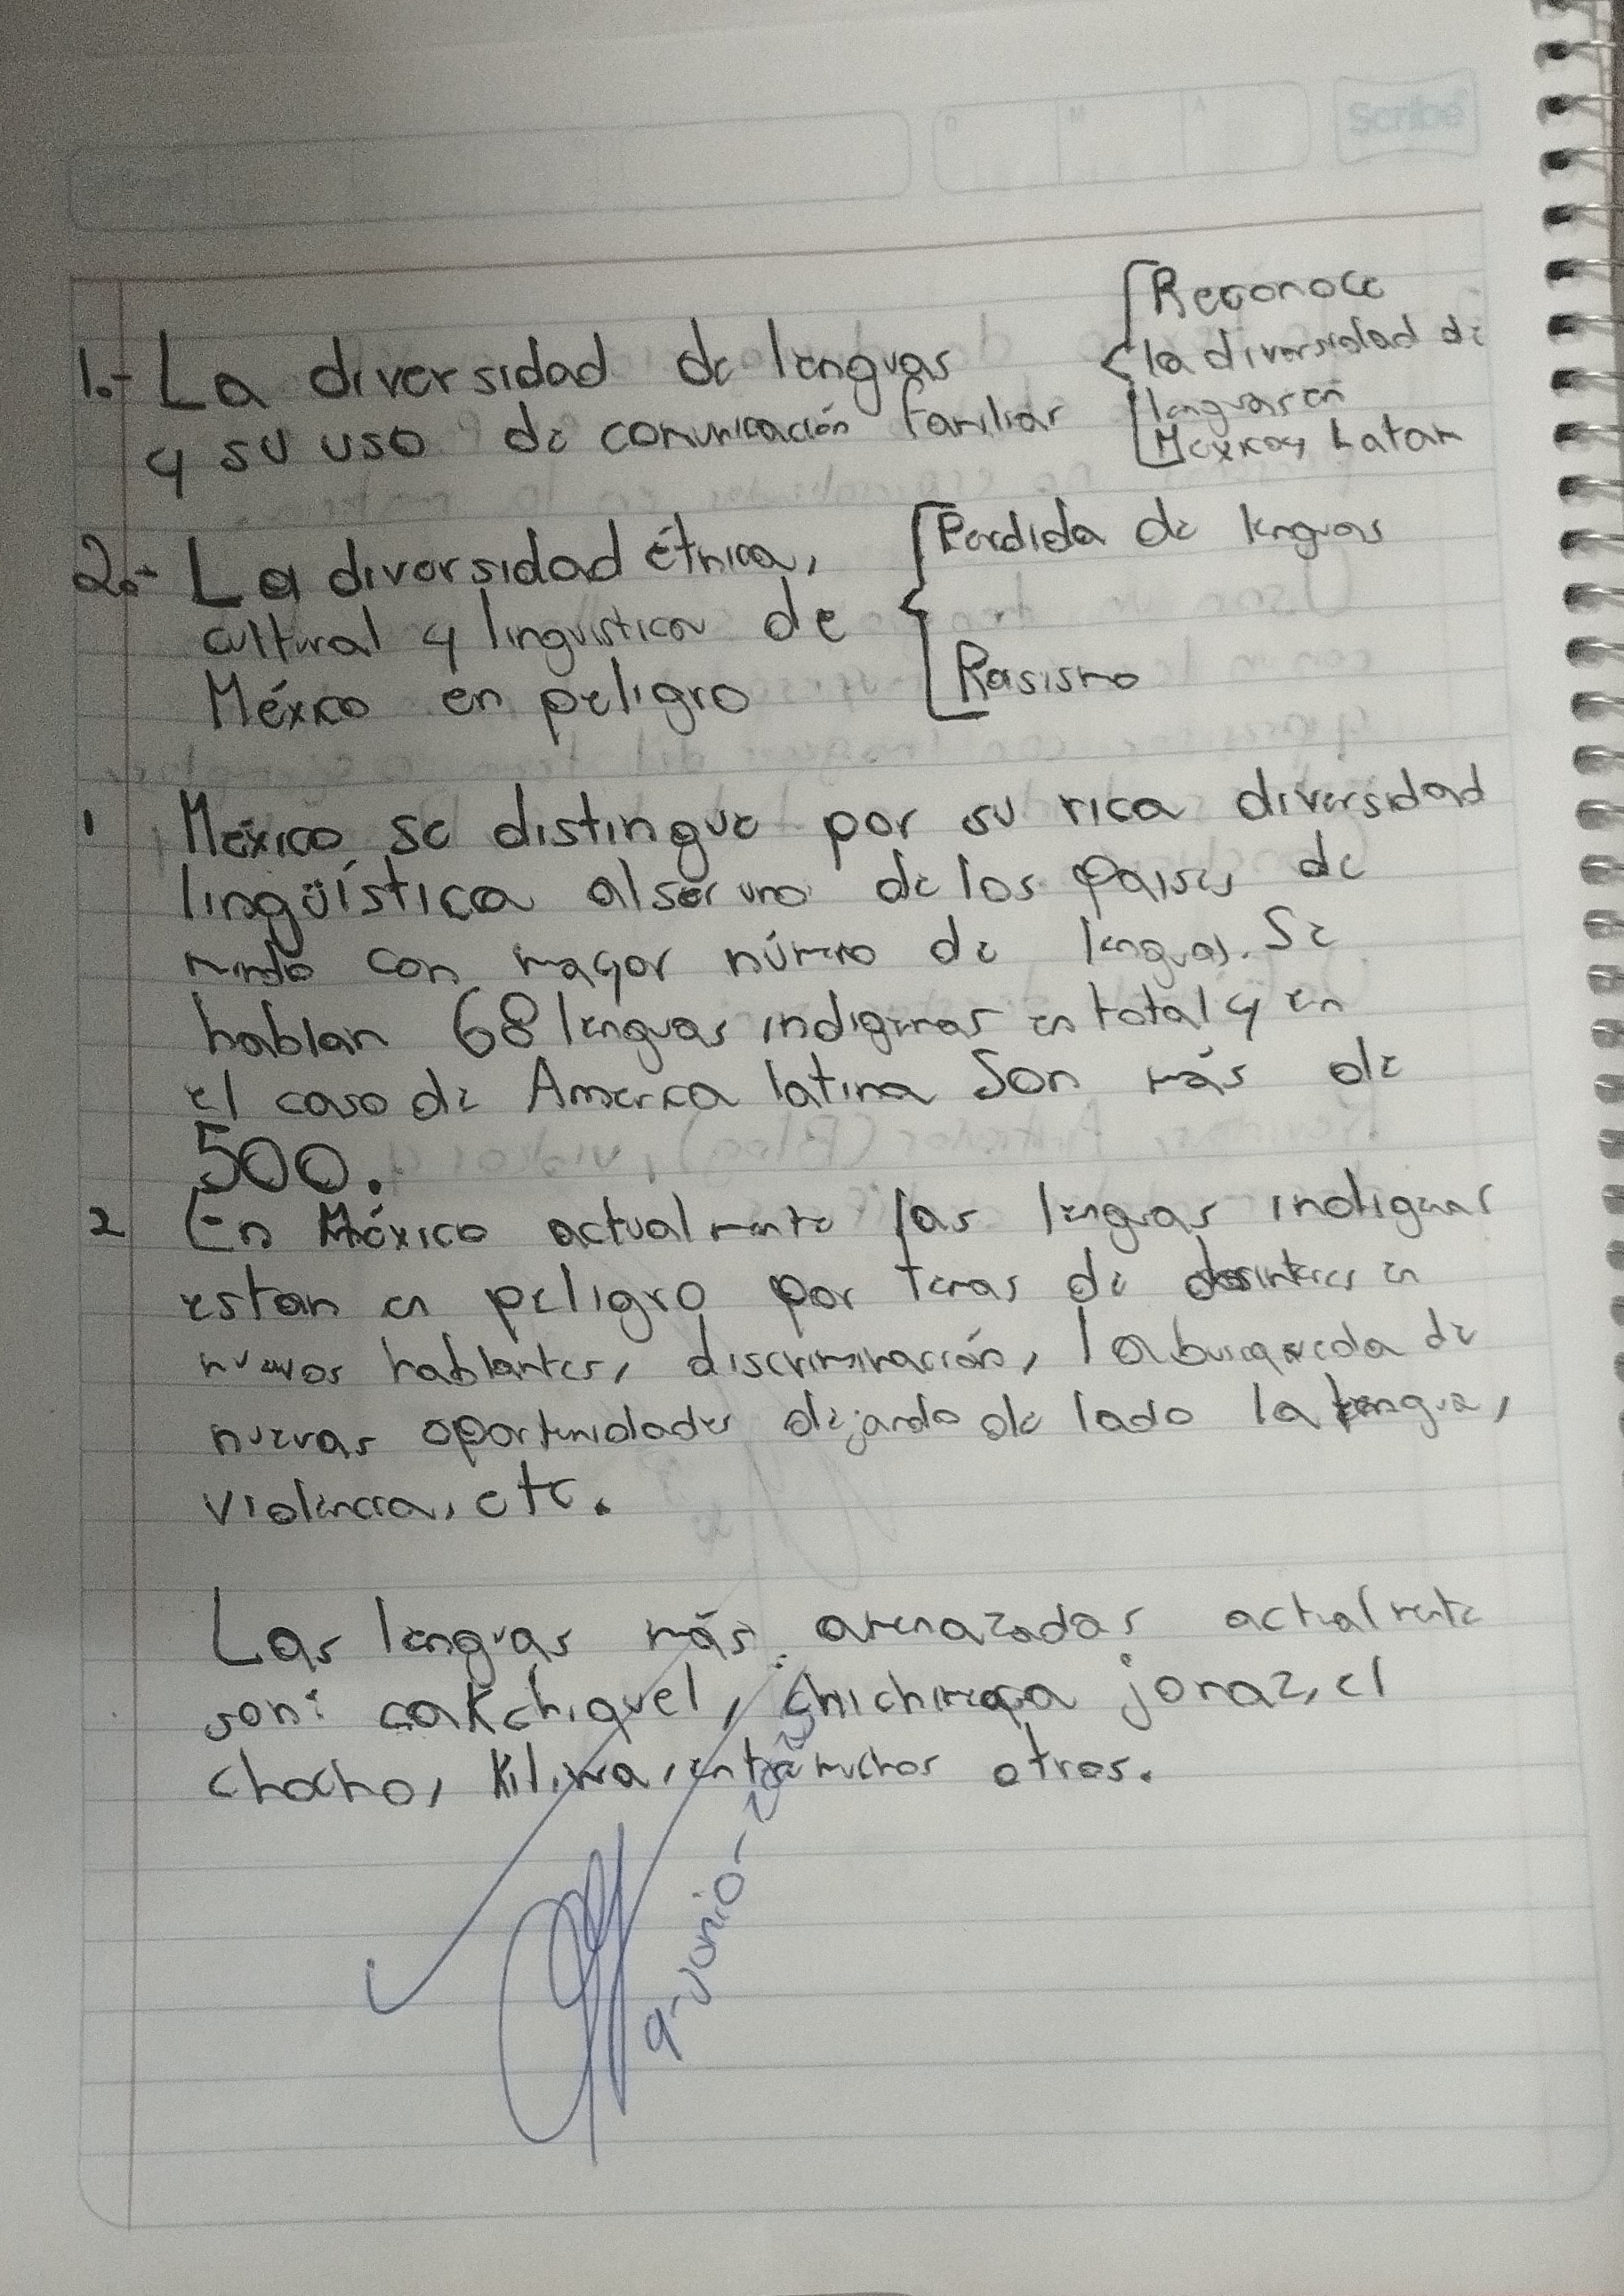 Scribe
D M A
1.- La diversidad de lenguas
y su uso de comunicación familiar
Reconoce
la diversidad de
lenguas en
México y Latam
2.- La diversidad étnica,
cultural y linguistica de
México en peligro
Perdida de lenguas
Rasismo
1 México se distingue por su rica diversidad
lingüística al ser uno de los paises de
mundo con mayor número de lenguas. Se
hablan 68 lenguas indigenas en total y en
el caso de America latina Son más de
500.
2 En México actualmente las lenguas indigenas
estan en peligro por temas de desinteres en
nuevos hablantes, discriminación, la busqueda de
nuevas oportunidades dejando de lado la lengua,
violencia, etc.
Las lenguas más amenazadas actualmente
son: cakchiquel, chichimeca jonaz, el
chocho, Kiliwa, entre muchos otros.
9-Junio-2023